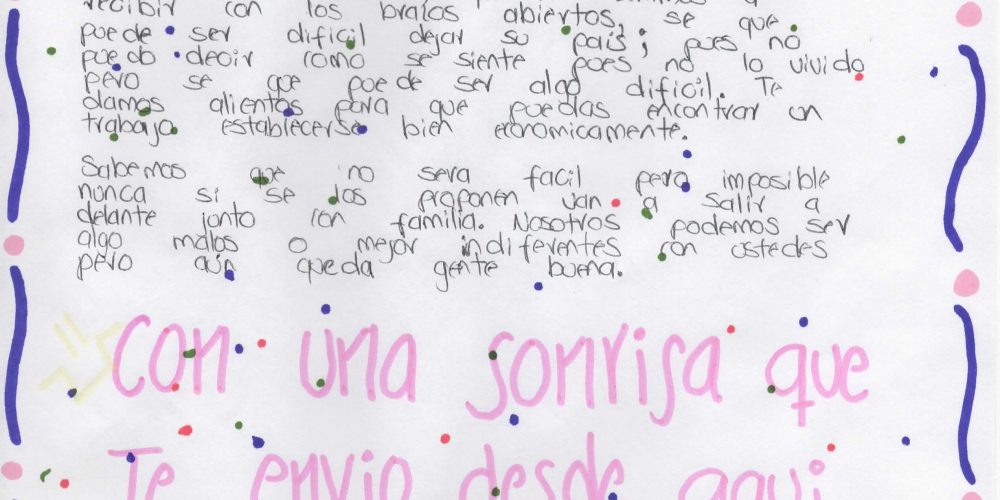 recibir con los brazos abiertos, se que
puede ser dificil dejar su país; pues no
puedo decir como se siente pues no lo vivido
pero se que puede ser algo dificil. Te
damos alientos para que puedas encontrar un
trabajo establecerse bien economicamente.
Sabemos que no sera facil pero imposible
nunca si se los proponen van a salir a
delante junto con familia. Nosotros podemos ser
algo malos o mejor indiferentes con ustedes
pero aún queda gente buena.
Con una sonrisa que
Te envio desde aqui